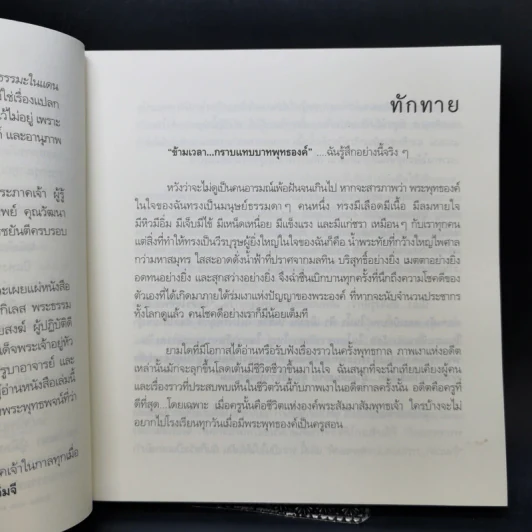 ธรรมะในแดน
ใช่เรื่องแปลก
ไว้ไม่อยู่ เพราะ
และอานุภาพ
ระภาคเจ้า ผู้รู้
คุณวัฒนา
ชยันตีครบรอบ
ะเผยแผ่หนังสือ
กิเลส พระธรรม
ยสงฆ์ ผู้ปฏิบัติดี
ด็จพระเจ้าอยู่หัว
รูบาอาจารย์ และ
ผู้อ่านหนังสือเล่มนี้
พระพุทธพจน์ที่ว่า
คเจ้าในกาลทุกเมื่อ
ทักทาย
"ข้ามเวลา...กราบแทบบาทพุทธองค์" ....ฉันรู้สึกอย่างนี้จริง ๆ
หวังว่าจะไม่ดูเป็นคนอารมณ์เพ้อฝันจนเกินไป หากจะสารภาพว่า พระพุทธองค์
ในใจของฉันทรงเป็นมนุษย์ธรรมดา ๆ คนหนึ่ง ทรงมีเลือดมีเนื้อ มีลมหายใจ
มีหิวมีอิ่ม มีเจ็บมีไข้ มีเหน็ดเหนื่อย มีแข็งแรง และมีแก่ชรา เหมือน ๆ กับเราทุกคน
แต่สิ่งที่ทำให้ทรงเป็นวีรบุรุษผู้ยิ่งใหญ่ในใจของฉันก็คือ น้ำพระทัยที่กว้างใหญ่ไพศาล
กว่ามหาสมุทร ใสสะอาดดั่งน้ำฟ้าที่ปราศจากมลทิน บริสุทธิ์อย่างยิ่ง เมตตาอย่างยิ่ง
อดทนอย่างยิ่ง และสุกสว่างอย่างยิ่ง จึงฉ่ำชื่นเบิกบานทุกครั้งที่นึกถึงความโชคดีของ
ตัวเองที่ได้เกิดมาภายใต้ร่มเงาแห่งปัญญาของพระองค์ นี่หากจะนับจำนวนประชากร
ทั้งโลกดูแล้ว คนโชคดีอย่างเราก็มีน้อยเต็มที
ยามใดที่มีโอกาสได้อ่านหรือรับฟังเรื่องราวในครั้งพุทธกาล ภาพเงาแห่งอดีต
เหล่านั้นมักจะลุกขึ้นโลดเต้นมีชีวิตชีวาขึ้นมาในใจ ฉันสนุกที่จะนึกเทียบเคียงผู้คน
และเรื่องราวที่ประสบพบเห็นในชีวิตวันนี้กับภาพเงาในอดีตกาลครั้งนั้น อดีตคือครูที่
ดีที่สุด...โดยเฉพาะ เมื่อครูนั้นคือชีวิตแห่งองค์พระสัมมาสัมพุทธเจ้า ใครบ้างจะไม่
อยากไปโรงเรียนทุกวันเมื่อมีพระพุทธองค์เป็นครูสอน